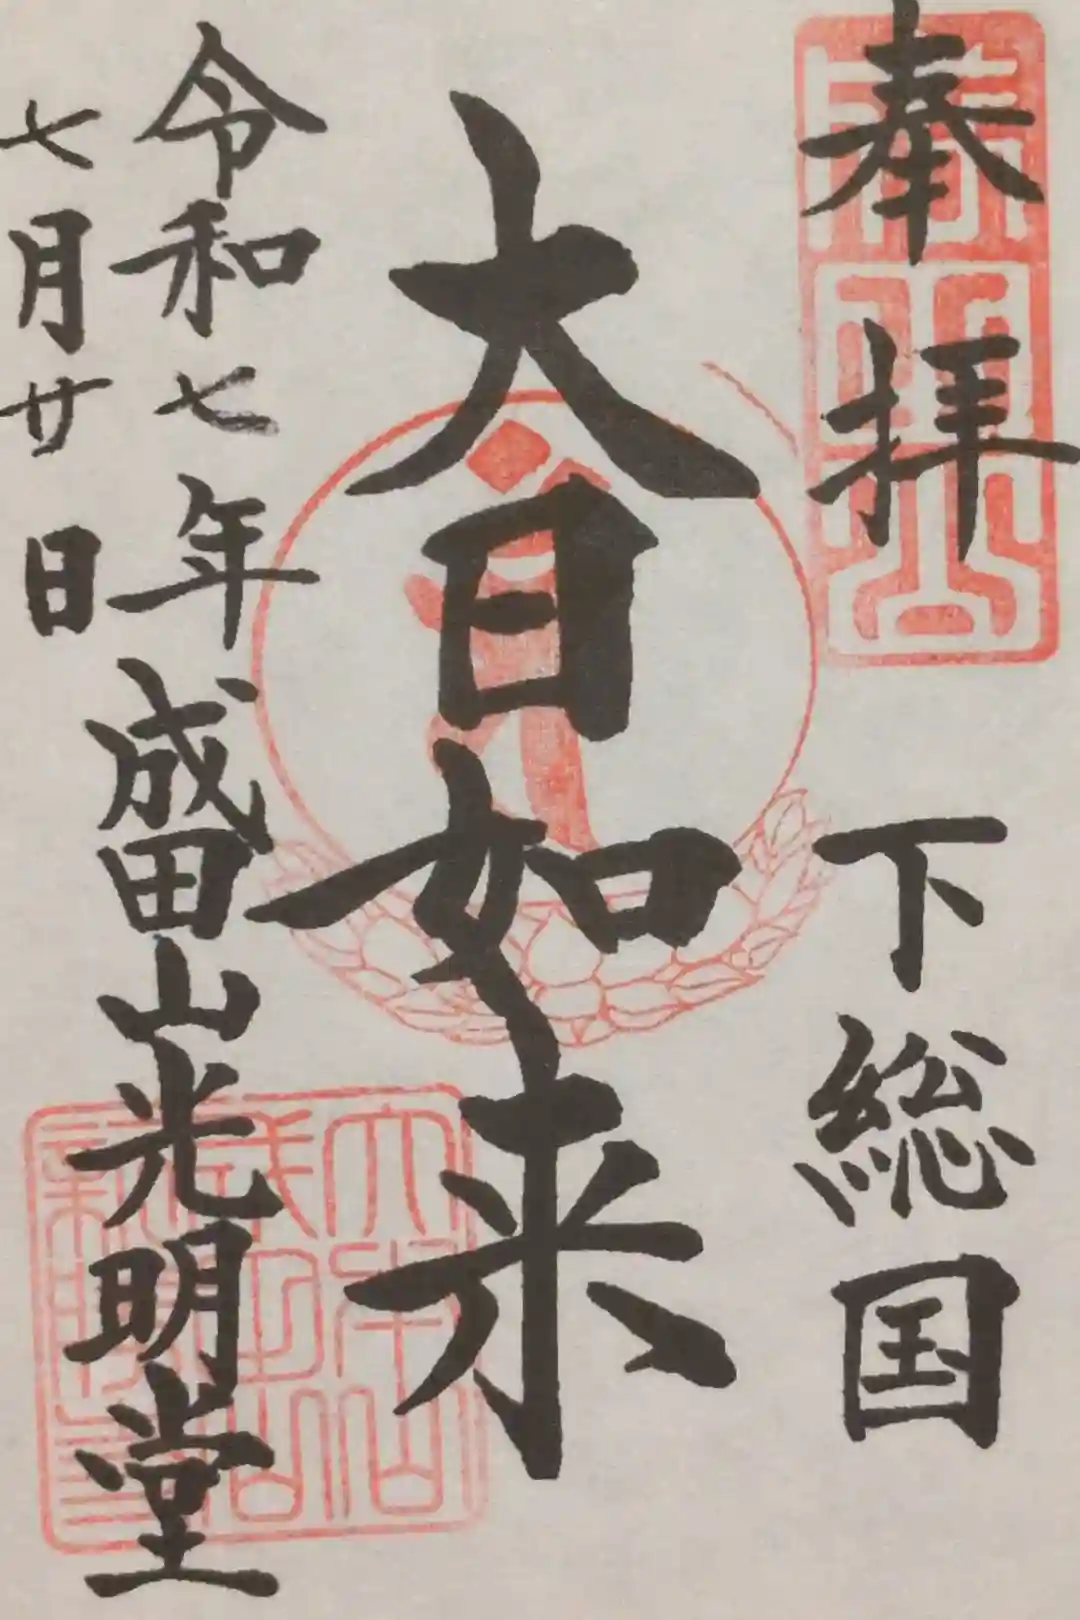 奉拝
下総国
大日如来
令和七年
七月廿日
成田山光明堂